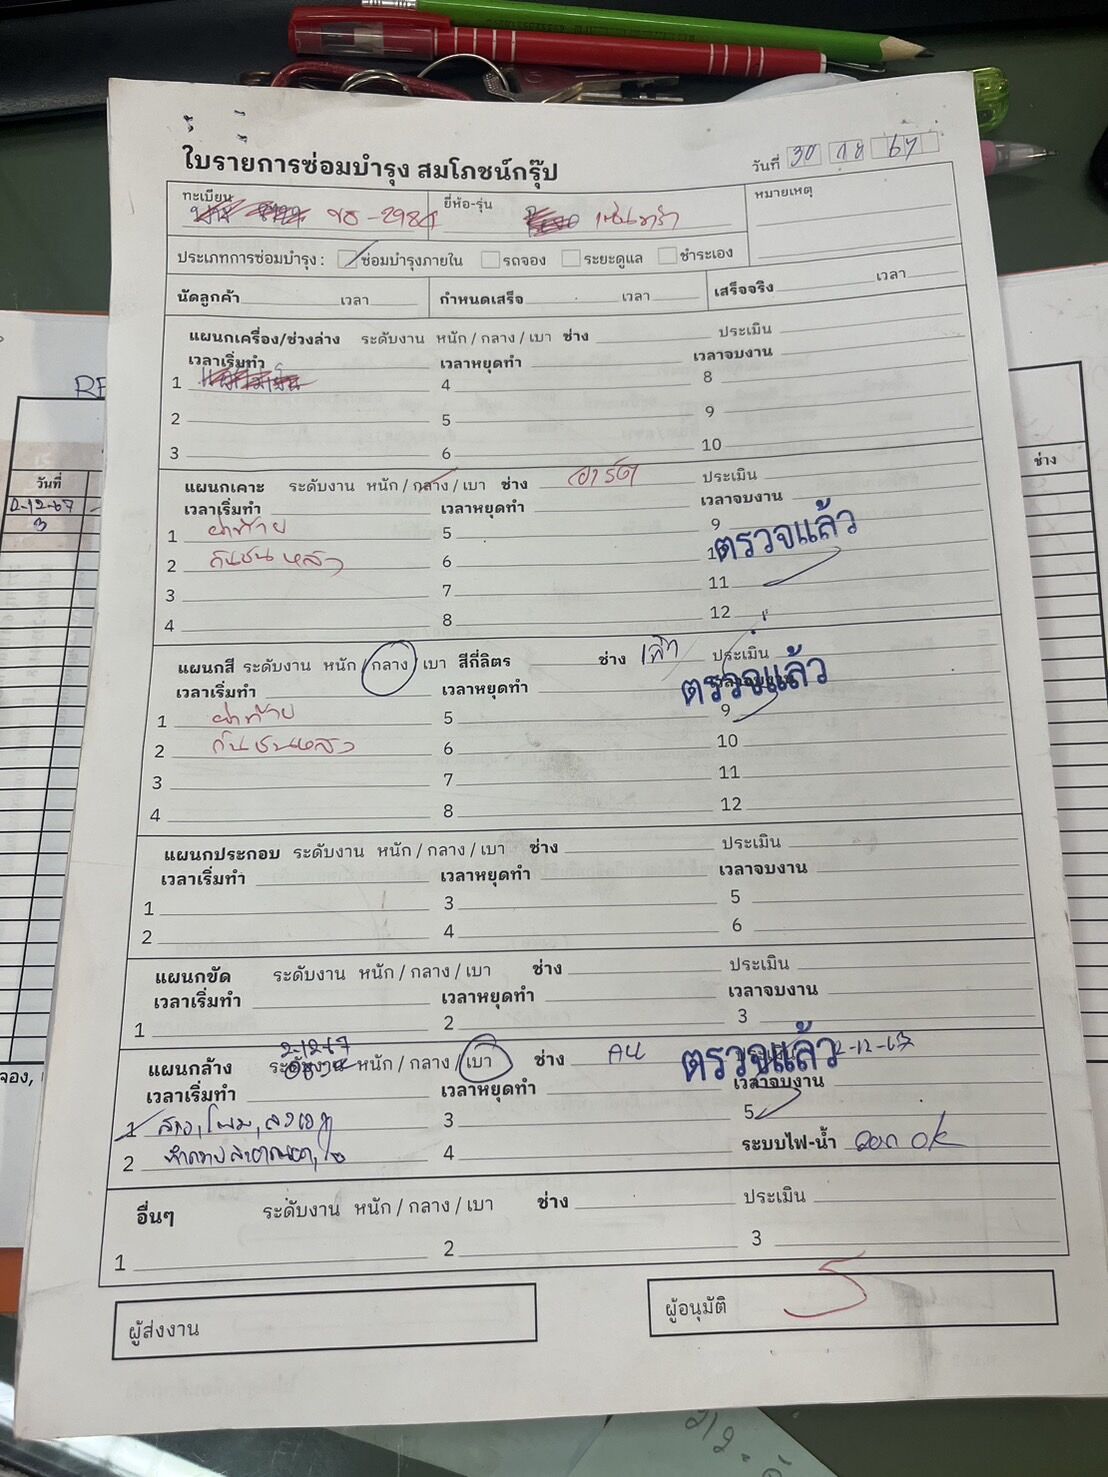 ใบรายการซ่อมบำรุง สมโภชน์กรุ๊ป
วันที่ 30 67
ทะเบียน ขอ-2984
ยี่ห้อ-รุ่น
หมายเหตุ
ประเภทการซ่อมบำรุง : ซ่อมบำรุงภายใน รถจอง ระยะดูแล ชำระเอง
นัดลูกค้า เวลา กำหนดเสร็จ เวลา เสร็จจริง เวลา
แผนกเครื่อง/ช่วงล่าง ระดับงาน หนัก / กลาง / เบา ช่าง ประเมิน
เวลาเริ่มทำ เวลาหยุดทำ เวลาจบงาน
1 4 8
2 5 9
3 6 10
แผนกเคาะ ระดับงาน หนัก / กลาง / เบา ช่าง ประเมิน
เวลาเริ่มทำ เวลาหยุดทำ เวลาจบงาน
1 ฝาท้าย 5 9
ตรวจแล้ว
2 กันชนหลัง 6
3 7 11
4 8 12
แผนกสี ระดับงาน หนัก / กลาง / เบา สีกี่ลิตร ช่าง ประเมิน
เวลาเริ่มทำ เวลาหยุดทำ เวลาจบงาน
ตรวจแล้ว
1 ฝาท้าย 5 9
2 กันชนหลัง 6 10
3 7 11
4 8 12
แผนกประกอบ ระดับงาน หนัก / กลาง / เบา ช่าง ประเมิน
เวลาเริ่มทำ เวลาหยุดทำ เวลาจบงาน
1 3 5
2 4 6
แผนกขัด ระดับงาน หนัก / กลาง / เบา ช่าง ประเมิน
เวลาเริ่มทำ เวลาหยุดทำ เวลาจบงาน
1 2 3
2-12-67
แผนกล้าง ระดับงาน หนัก / กลาง / เบา ช่าง ตรวจแล้ว 2-12-67
เวลาเริ่มทำ เวลาหยุดทำ เวลาจบงาน
1 3 5
2 4 ระบบไฟ-น้ำ ok
อื่นๆ ระดับงาน หนัก / กลาง / เบา ช่าง ประเมิน
1 2 3
ผู้ส่งงาน
ผู้อนุมัติ
วันที่
2-12-67
3
ช่าง